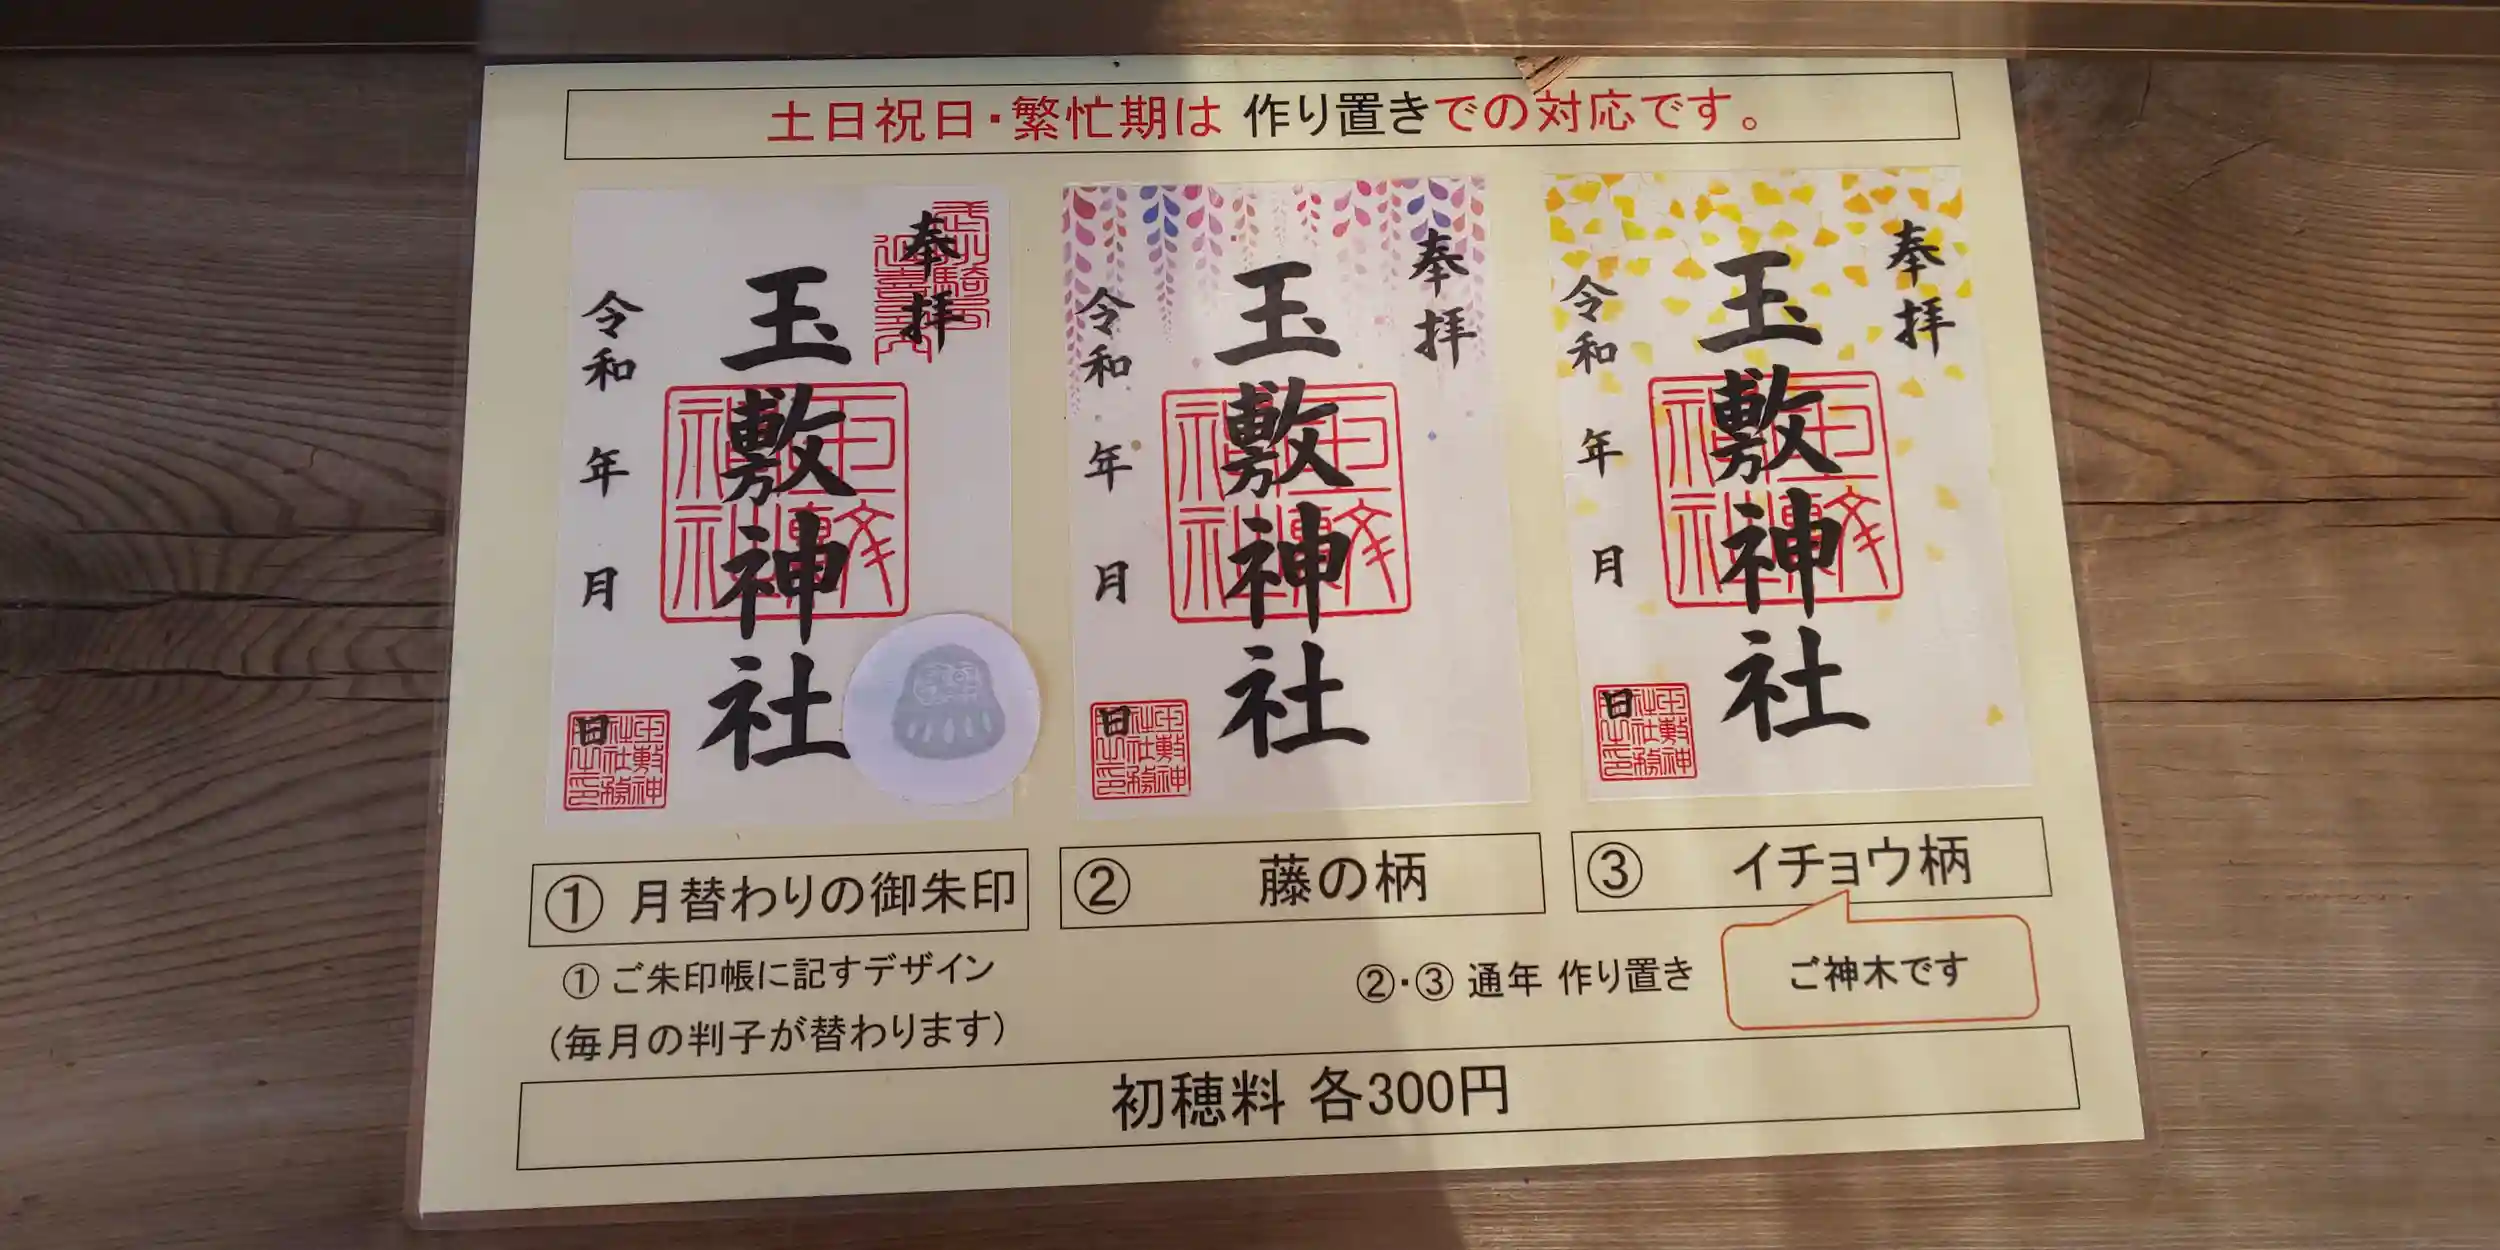 土日祝日・繁忙期は 作り置きでの対応です。
奉拝
玉敷神社
令和 年 月 日
奉拝
玉敷神社
令和 年 月 日
奉拝
玉敷神社
令和 年 月 日
① 月替わりの御朱印
② 藤の柄
③ イチョウ柄
① ご朱印帳に記すデザイン
(毎月の判子が替わります)
②・③ 通年 作り置き
ご神木です
初穂料 各300円